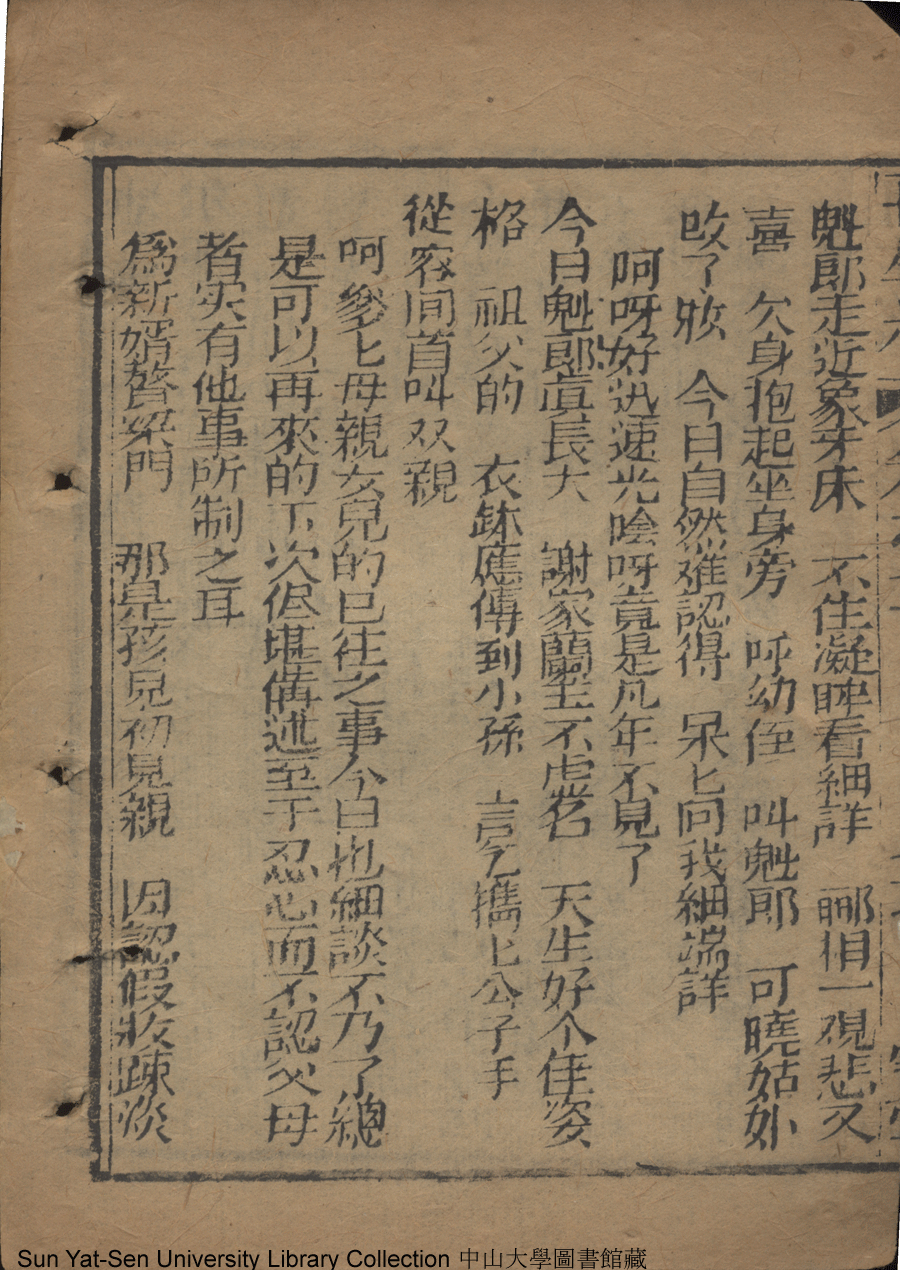 魁郎走近象牙床　不住凝眸看細詳　郦相一观悲又
喜　欠身抱起坐身旁　呼幼侄　叫魁郎　可曉姑外
改了妝　今日自然难認得　呆匕向我細端詳
呵呀好迅速光陰呀竟是凡年不見了
今日魁郎眞長大　謝家蘭玉不虚名　天生好个佳姿
格　祖父的　衣缽應傳到小孫　言乞攜匕公子手
從容间首叫双親
呵爹匕母親女兒的已往之事今白也細談不乃了總
是可以再來的下次但堪備述至于忍心而不認父母
者実有他事所制之耳
爲新婿贅梁門　那是孩兒初見親　因認假妝疎淡
Sun Yat-Sen University Library Collection 中山大學圖書館藏